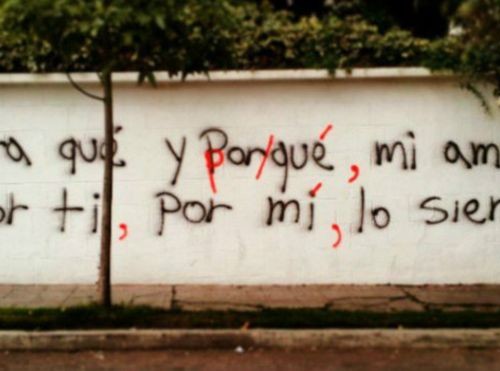 ra qué y Por/qué, mi am
or ti, por mí, lo sien